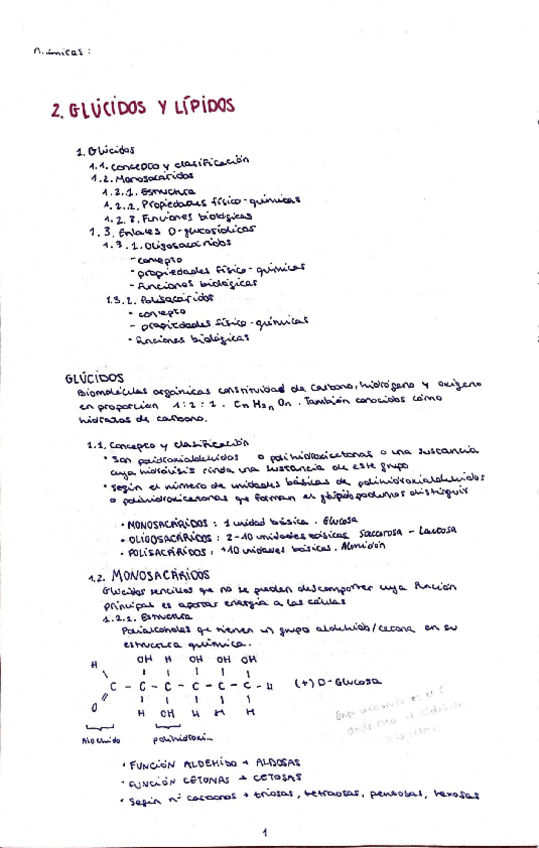 2. GLÚCIDOS Y LÍPIDOS
1. Glúcidos
1.1. Concepto y clasificación
1.2. Monosacáridos
1.2.1. Estructura
1.2.2. Propiedades físico-químicas
1.2.3. Funciones biológicas
1.3. Enlaces O-glucosídicos
1.3.1. Oligosacáridos
- concepto
- propiedades físico-químicas
- Funciones biológicas
1.3.2. Polisacáridos
- concepto
- propiedades físico-químicas
- Funciones biológicas
GLÚCIDOS
Biomoléculas orgánicas constituidas de carbono, hidrógeno y oxígeno
en proporcion 1:2:1. CnH2nOn. También conocidos como
hidratos de carbono.
1.1. Concepto y clasificación
• Son polihidroxialdehídos o polihidroxicetonas o una sustancia
cuya hidrólisis rinda una sustancia de este grupo
• Según el número de unidades básicas de polihidroxialdehidos
o polihidroxicetonas que forman el glúcido podemos distinguir
• MONOSACÁRIDOS : 1 unidad básica. Glucosa
• OLIGOSACÁRIDOS : 2-10 unidades básicas Sacarosa - Lactosa
• POLISACÁRIDOS : +10 unidades básicas. Almidón
1.2. MONOSACÁRIDOS
Glúcidos sencillos que no se pueden descomponer cuya función
principal es aportar energía a las células
1.2.1. Estructura
Polialcoholes que tienen un grupo aldehído/cetona en su
estructura química.
OH H OH OH OH
H
C - C - C - C - C - C - H (+) D-Glucosa
O
H OH H H H
Aldehído polihidroxi
• FUNCIÓN ALDEHÍDO → ALDOSAS
• FUNCIÓN CETONAS → CETOSAS
• Según nº carbonos → triosas, tetrosas, pentosas, hexosas
1